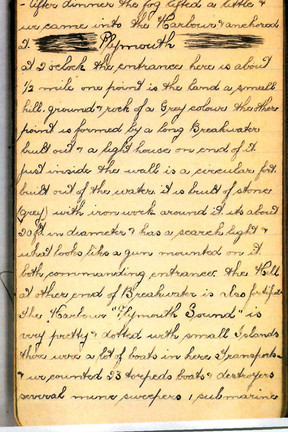 - After dinner the fog lifted a little &
we came into the Harbour & anchored
Plymouth
at 2 o'clock the entrance here is about
1/2 mile one point is the land a small
hill. ground & rock of a Grey colour the other
point is formed by a long Breakwater
built out & a light house on end of it.
just inside the wall is a circular fort.
built out of the water it is built of stone
(grey) with iron work around it. its about
20 ft in diameter & has a search light &
what looks like a gun mounted on it.
both commanding entrances. the Wall
at other end of Breakwater is also fortified
The Harbour "Plymouth Sound" is
very pretty & dotted with small Islands
there were a lot of boats in here Transports -
& we counted 23 torpedo boats & destroyers
several mine sweepers 1 submarine